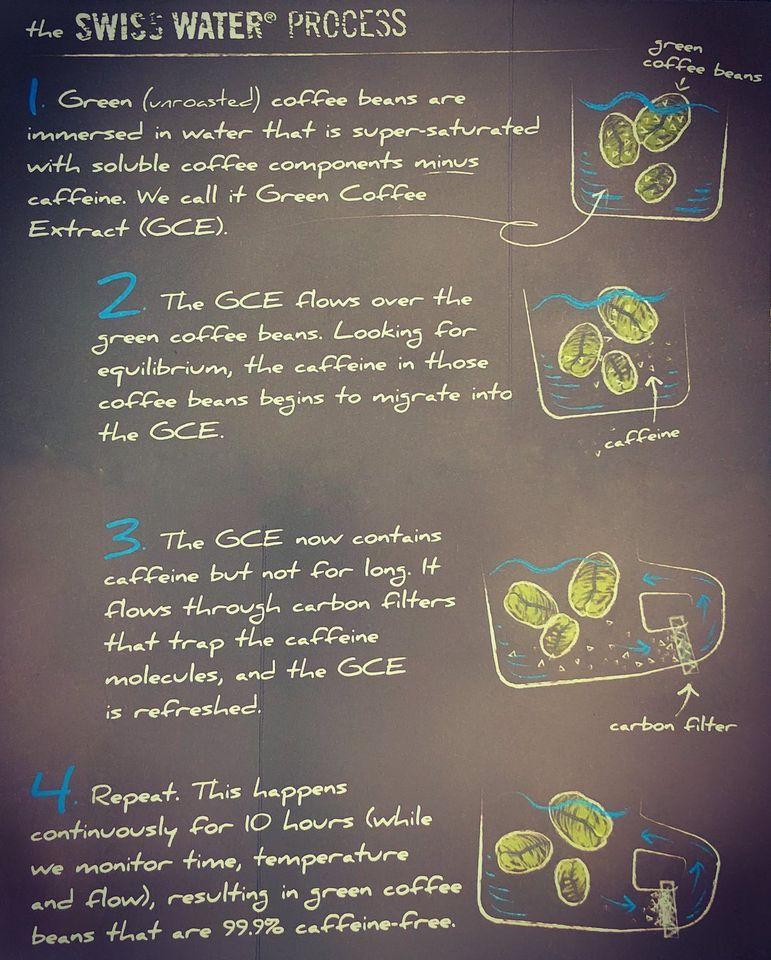 the SWISS WATER® PROCESS
green
coffee beans
1. Green (unroasted) coffee beans are
immersed in water that is super-saturated
with soluble coffee components minus
caffeine. We call it Green Coffee
Extract (GCE).
2. The GCE flows over the
green coffee beans. Looking for
equilibrium, the caffeine in those
coffee beans begins to migrate into
the GCE.
caffeine
3. The GCE now contains
caffeine but not for long. It
flows through carbon filters
that trap the caffeine
molecules, and the GCE
is refreshed.
carbon filter
4. Repeat. This happens
continuously for 10 hours (while
we monitor time, temperature
and flow), resulting in green coffee
beans that are 99.9% caffeine-free.